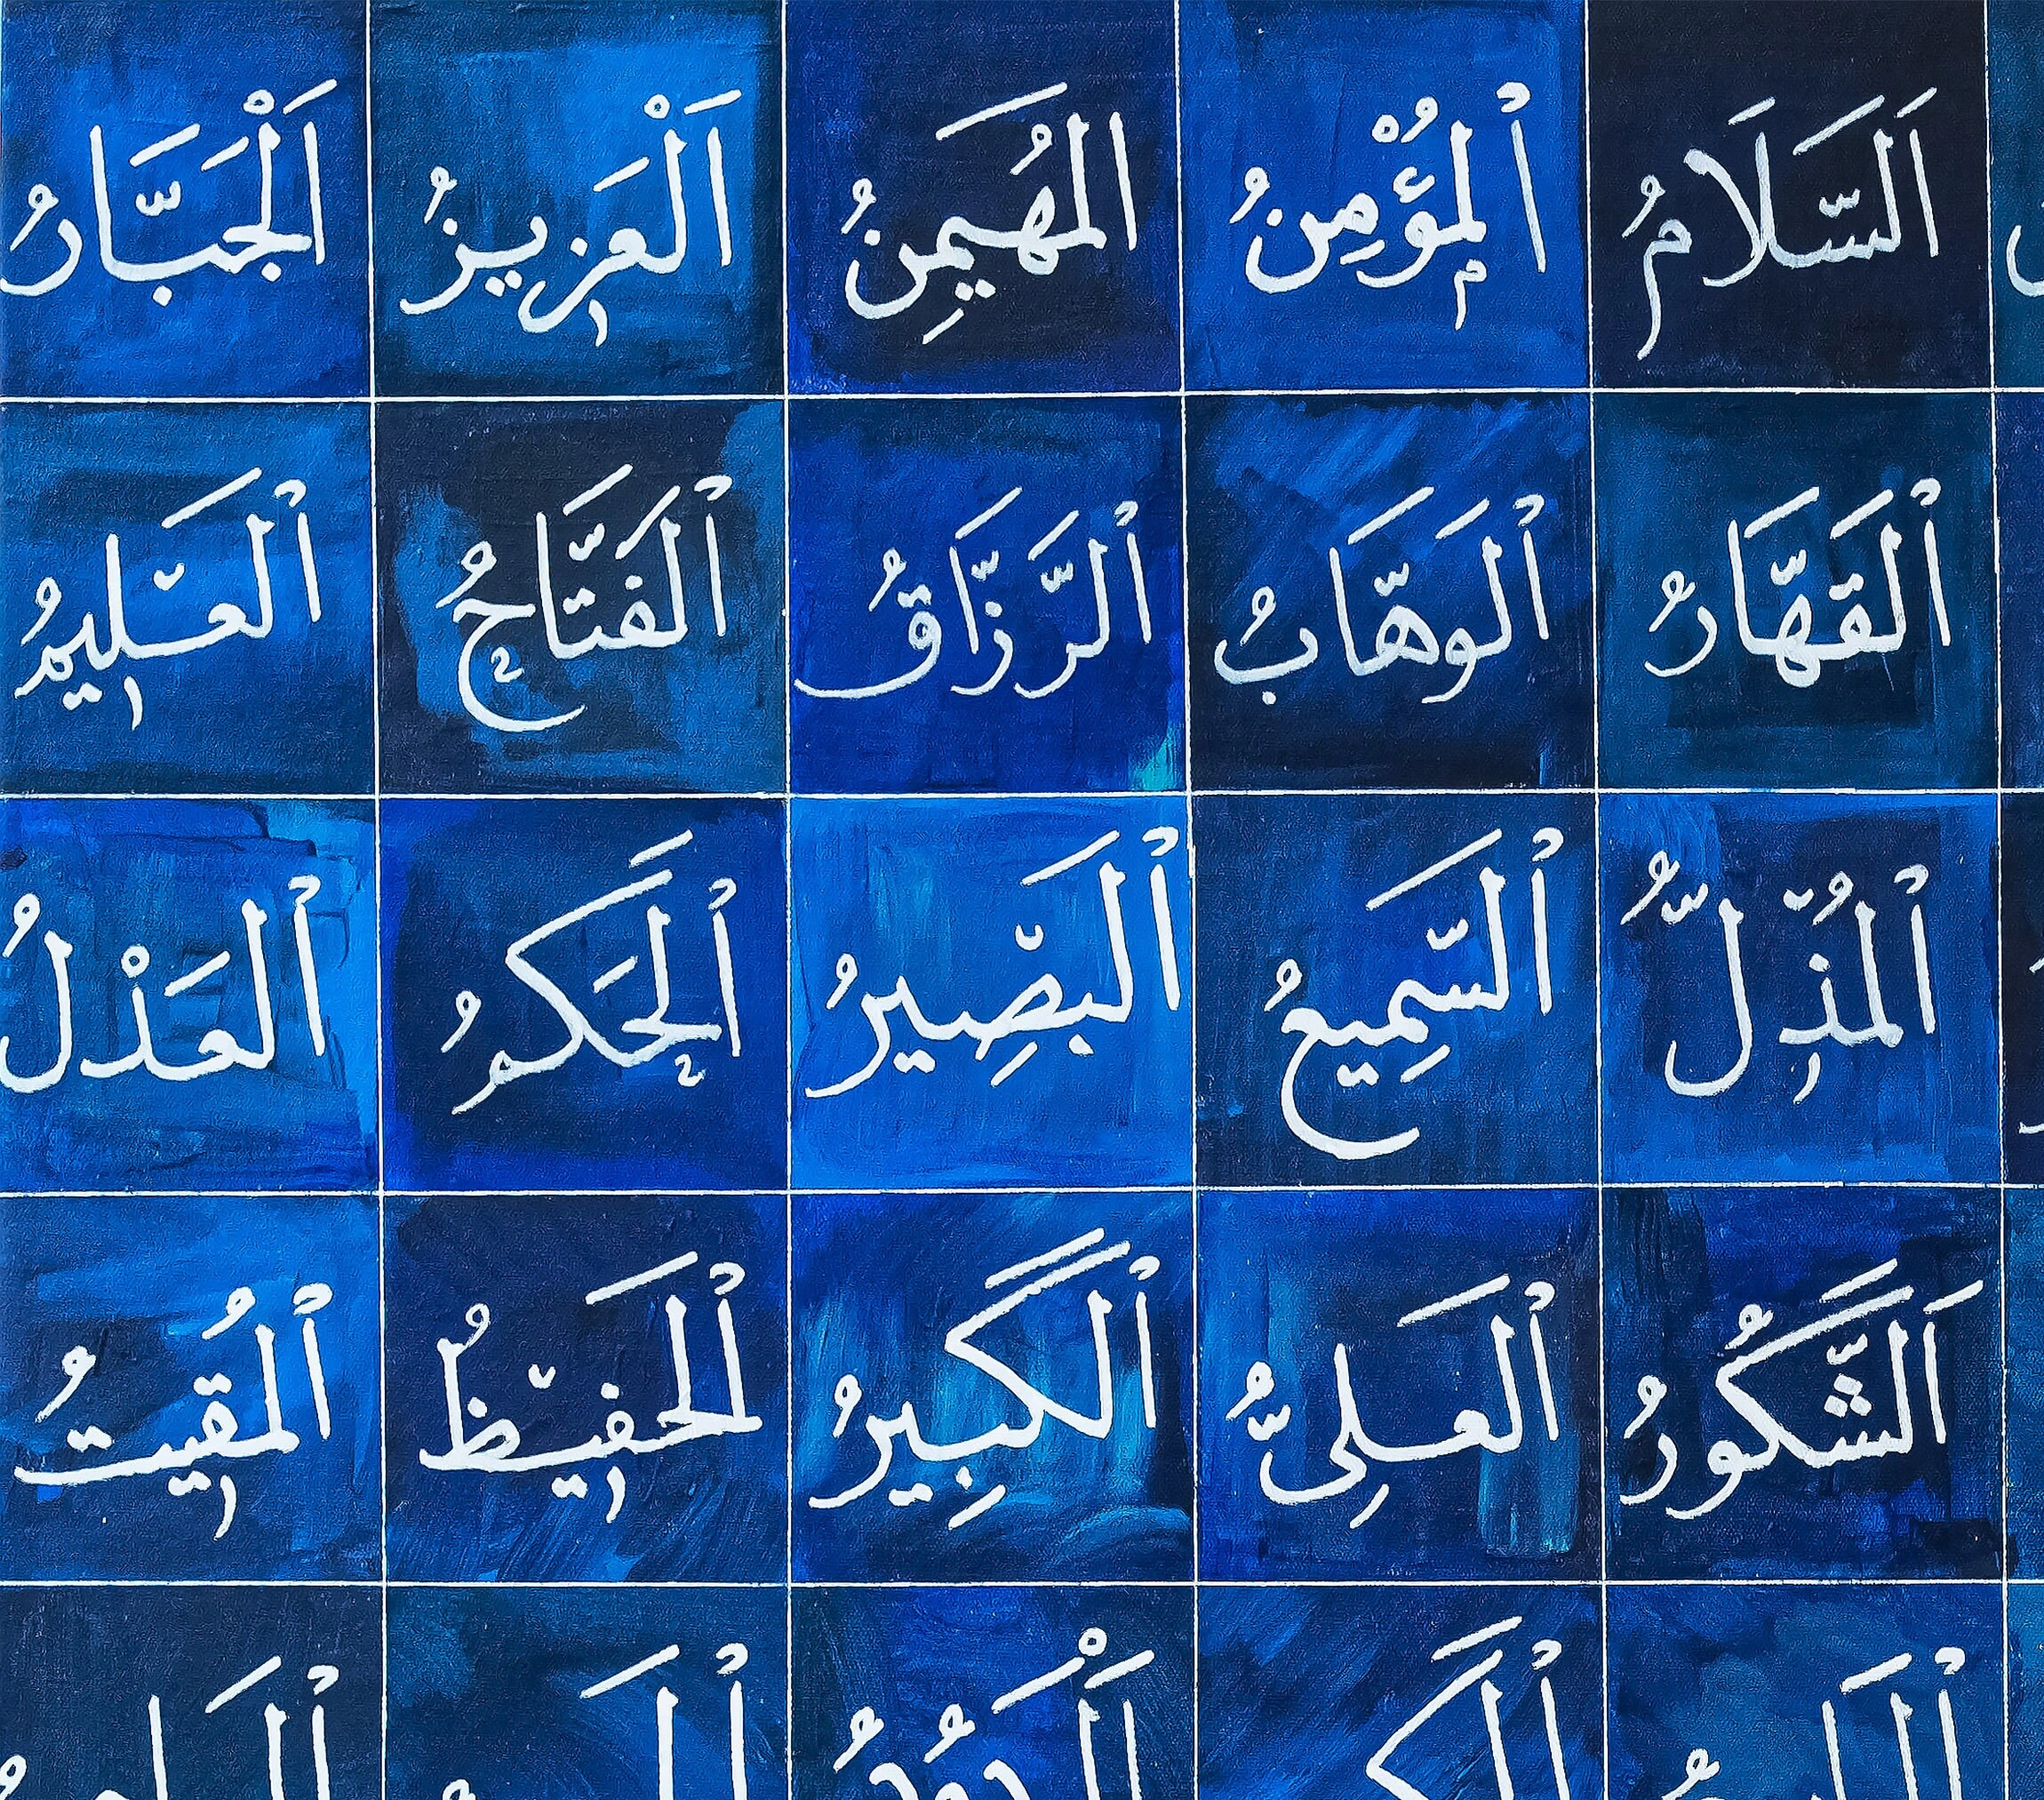 اَلسَّلَامُ اْلمُؤْمِنُ المُهَيمِنُ اَلْعَزِيزُ اَلْجَبَّارُ
اْلقَهَّارُ اْلوَهَّابُ اْلرَّزَّاقُ اْلفَتَّاحُ اْلعَلِيمُ
اْلمُذِلُّ اْلسَّمِيعُ اْلبَصِيرُ اْلحَكَمُ اْلعَدْلُ
اَلشَّكُورُ اْلعَلِىُّ اْلكَبِيرُ اْلحَفِيظُ اْلمُقِيتُ